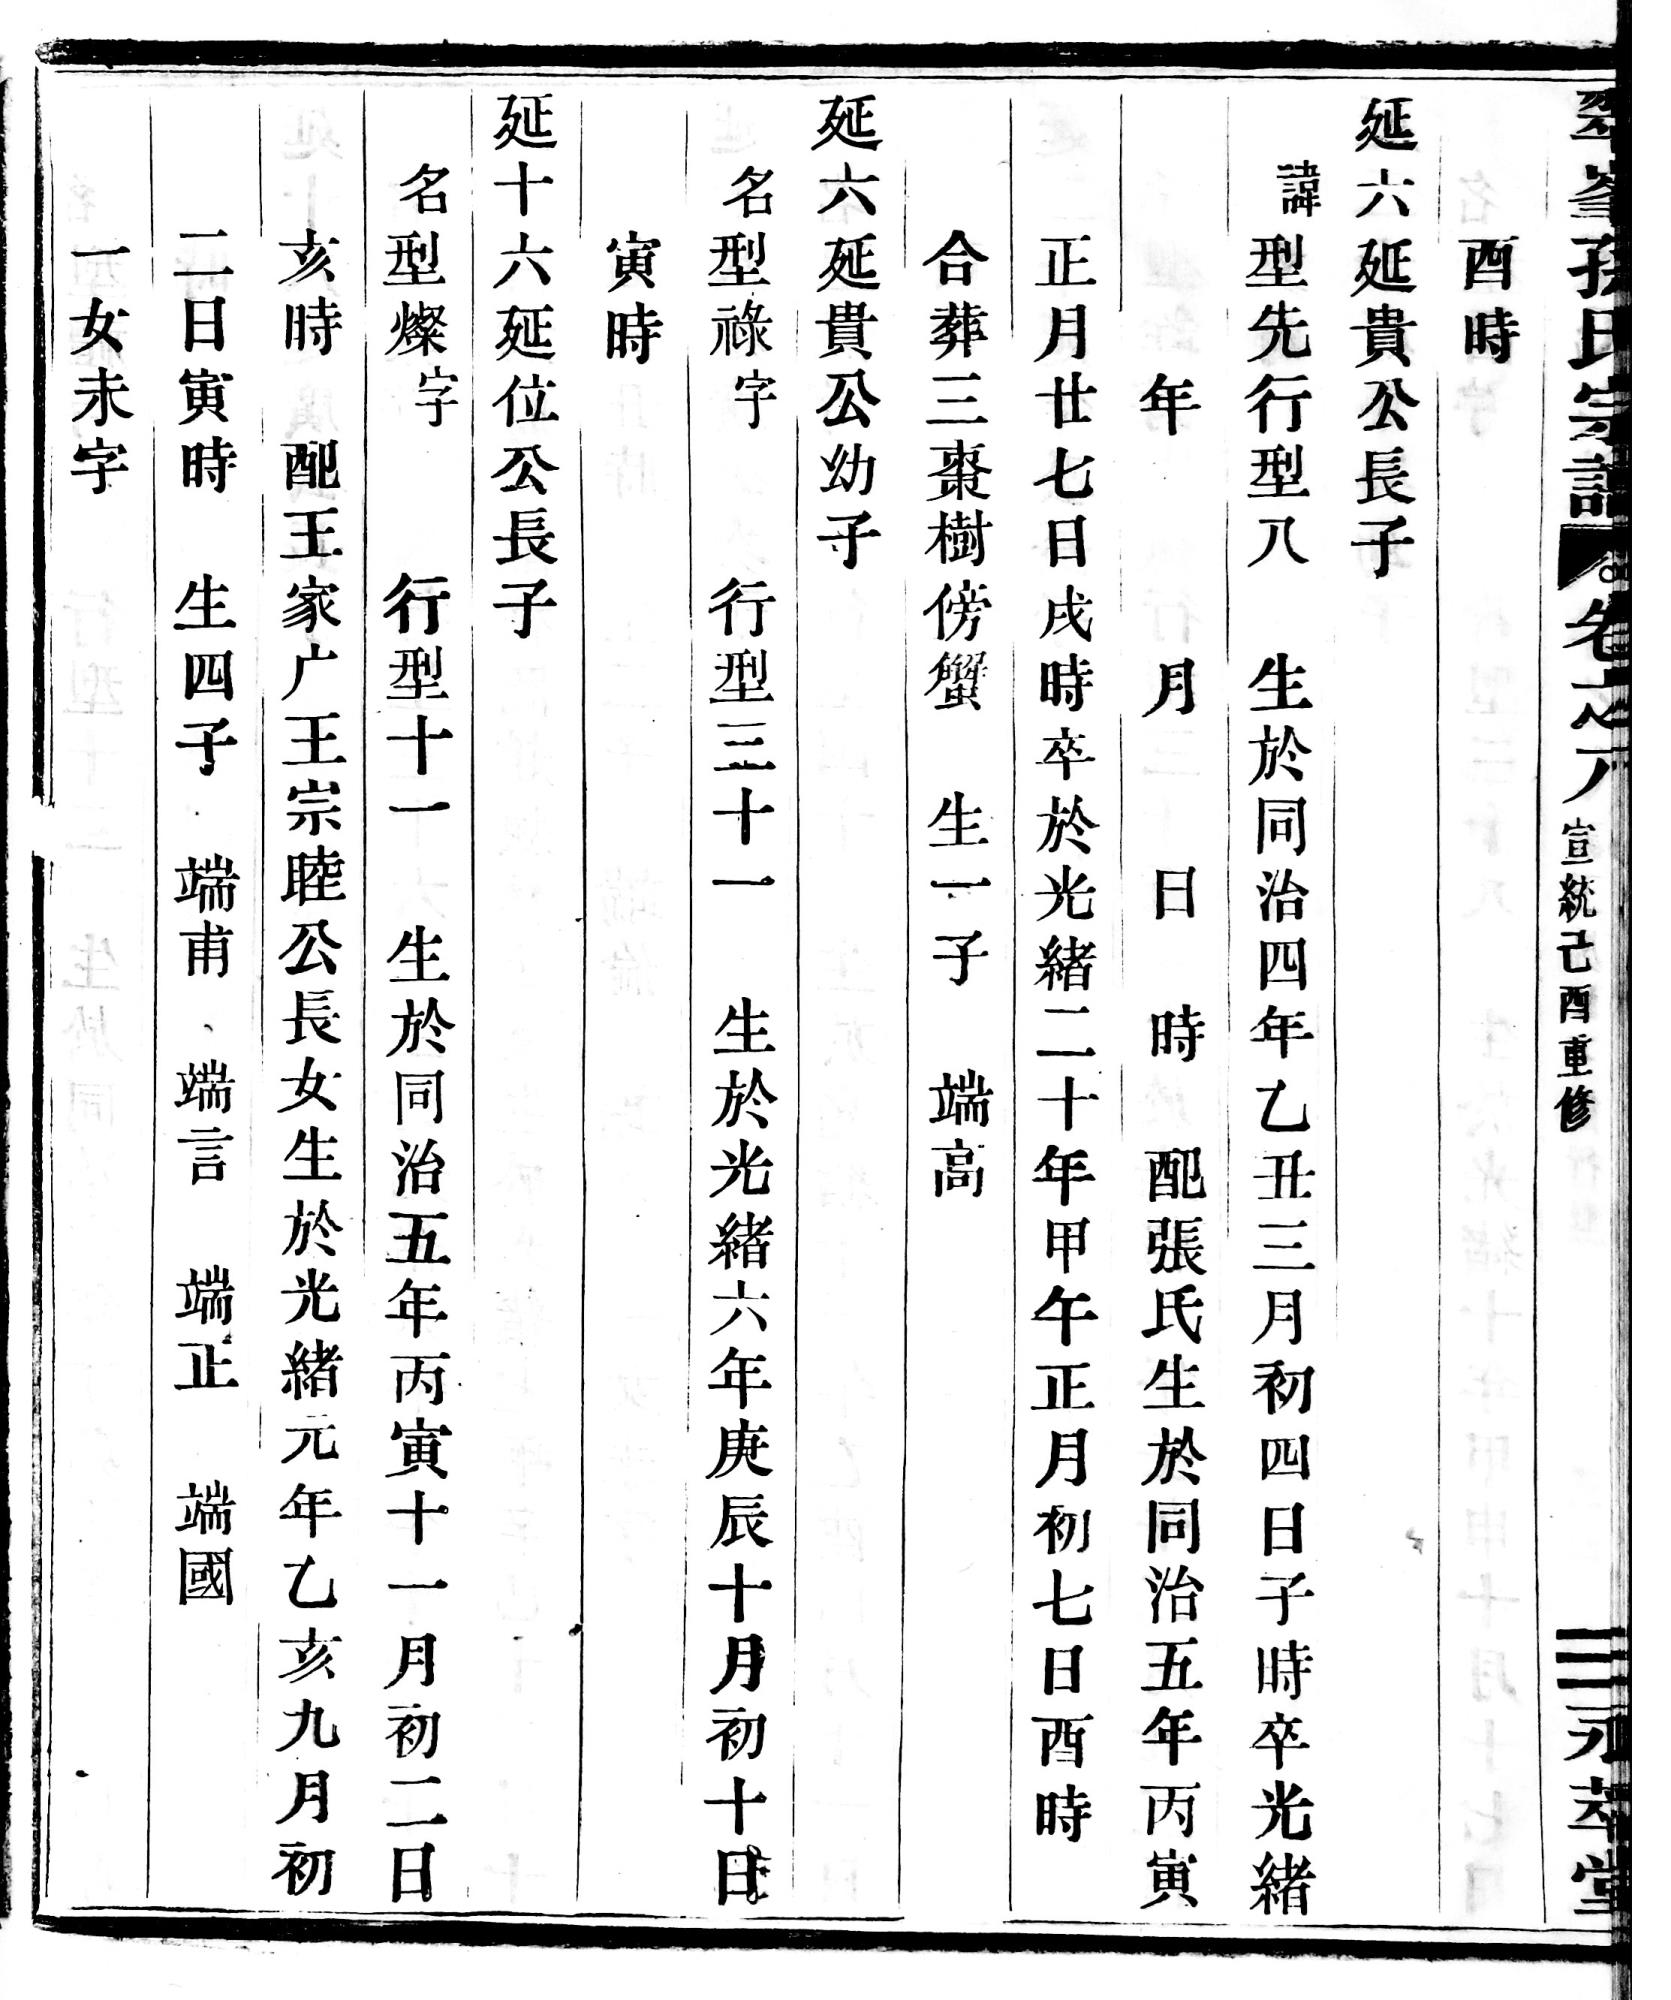 翠峯孫氏宗譜 卷之八 宣統己酉重修 三 永萃堂
酉時
延六延貴公長子
諱型先行型八 生於同治四年乙丑三月初四日子時卒光緒
年 月 日 時 配張氏生於同治五年丙寅
正月廿七日戌時卒於光緒二十年甲午正月初七日酉時
合葬三棗樹傍蟹 生一子 端高
延六延貴公幼子
名型祿字 行型三十一 生於光緒六年庚辰十月初十日
寅時
延十六延位公長子
名型燦字 行型十一 生於同治五年丙寅十一月初二日
亥時 配王家广王宗睦公長女生於光緒元年乙亥九月初
二日寅時 生四子 端甫 端言 端正 端國
一女未字